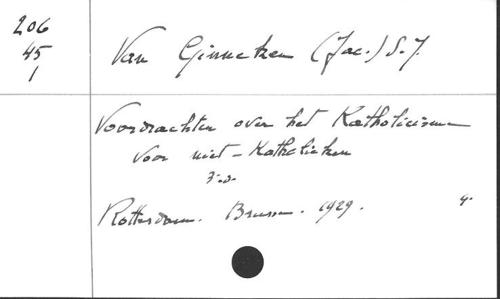 206
45
1
Van Ginneken (Jac.) S.J.
Voordrachten over het Katholicisme
voor niet-Katholieken
Rotterdam. Brusse. 1929. 4.